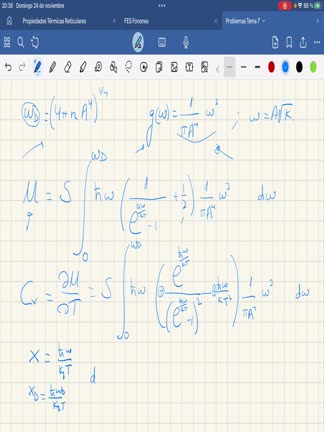 20:38 Domingo 24 de noviembre 88 %
Propiedades Térmicas Reticulares FES Fonones Problemas Tema 7
ω_D = (4πn A⁴)^1/4 g(ω) = 1/πA⁴ ω³ ; ω = A√K
U = S ∫₀^ωD ħω (1/(e^(ħω/KT) - 1) + 1/2) 1/πA⁴ ω³ dω
C_v = ∂U/∂T = S ∫₀^ωD ħω (⊕ e^(ħω/KT)/(e^(ħω/KT) - 1)² ⊕ ħω/KT²) 1/πA⁴ ω³ dω
X = ħω/K_BT
X_D = ħω_D/K_BT d